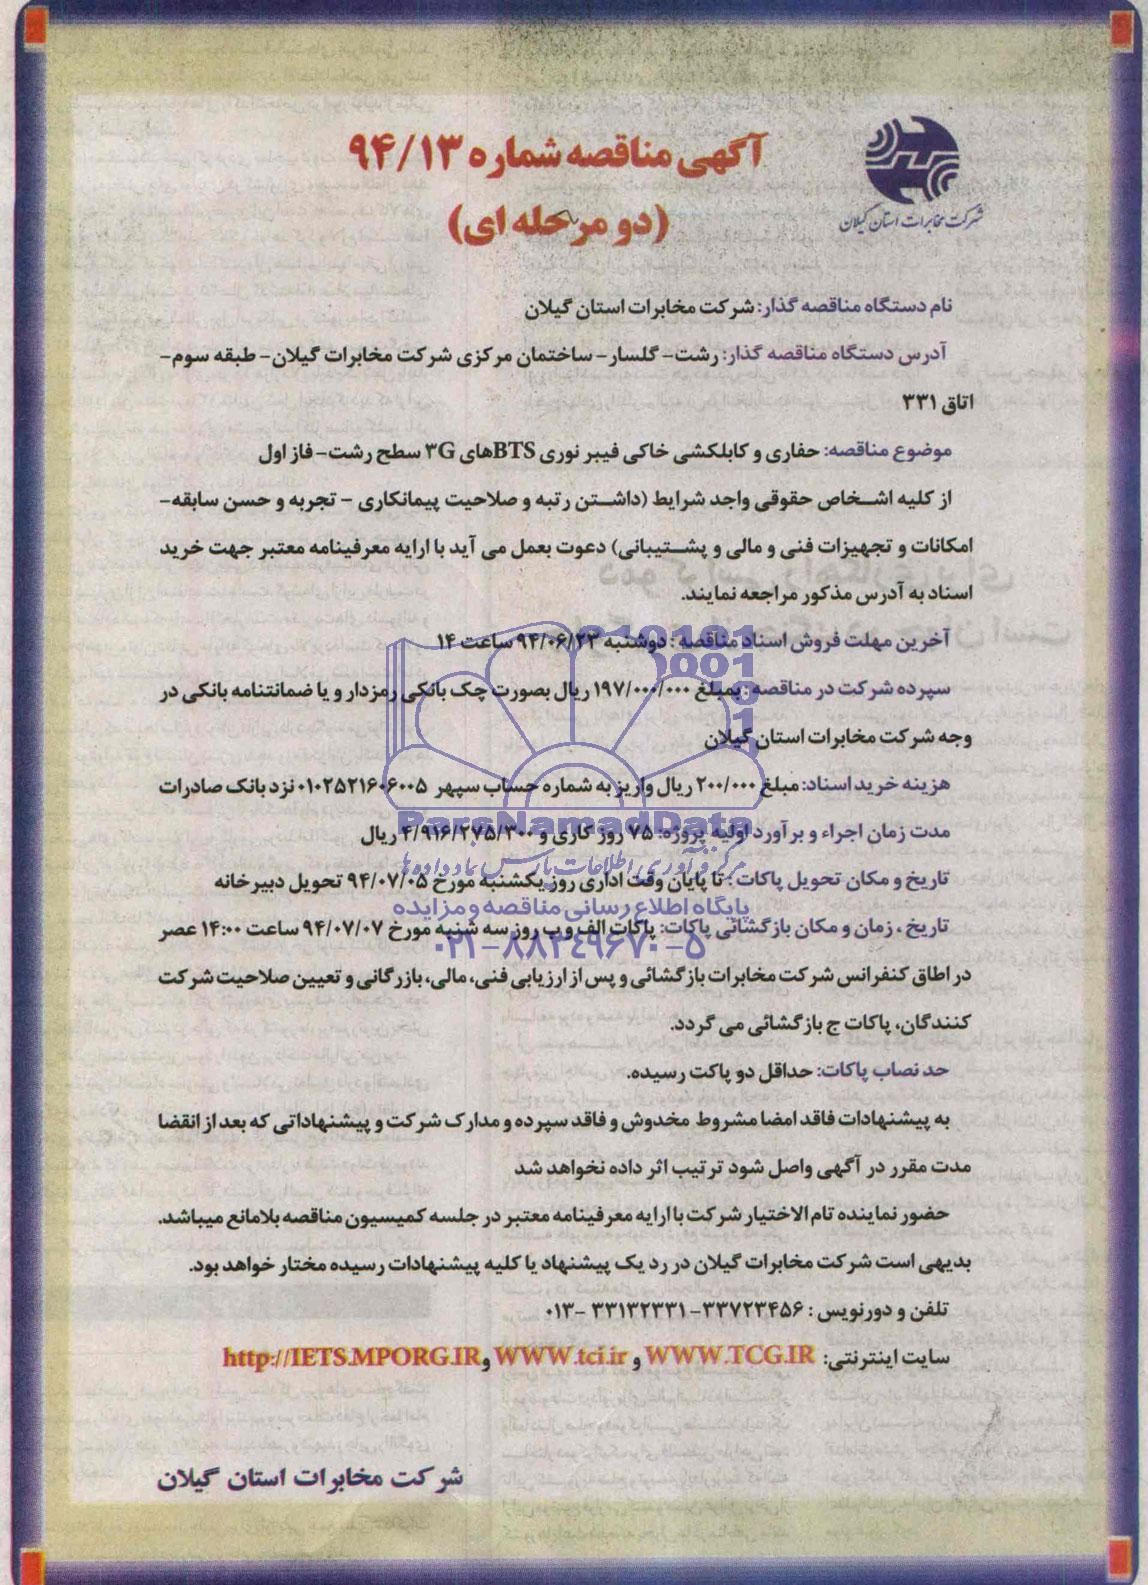 شرکت مخابرات استان گیلان
آگهی مناقصه شماره ۹۴/۱۳
(دو مرحله ای)
نام دستگاه مناقصه گذار: شرکت مخابرات استان گیلان
آدرس دستگاه مناقصه گذار: رشت- گلسار- ساختمان مرکزی شرکت مخابرات گیلان- طبقه سوم-
اتاق ۳۳۱
موضوع مناقصه: حفاری و کابلکشی خاکی فیبر نوری BTSهای ۳G سطح رشت- فاز اول
از کلیه اشخاص حقوقی واجد شرایط (داشتن رتبه و صلاحیت پیمانکاری - تجربه و حسن سابقه-
امکانات و تجهیزات فنی و مالی و پشتیبانی) دعوت بعمل می آید با ارایه معرفینامه معتبر جهت خرید
اسناد به آدرس مذکور مراجعه نمایند.
آخرین مهلت فروش اسناد مناقصه : دوشنبه ۹۴/۰۶/۲۳ ساعت ۱۴
سپرده شرکت در مناقصه: بمبلغ ۱۹۷/۰۰۰/۰۰۰ ریال بصورت چک بانکی رمزدار و یا ضمانتنامه بانکی در
وجه شرکت مخابرات استان گیلان
هزینه خرید اسناد: مبلغ ۲۰۰/۰۰۰ ریال واریز به شماره حساب سپهر ۰۱۰۲۵۲۱۶۰۶۰۰۵ نزد بانک صادرات
مدت زمان اجراء و برآورد اولیه پروژه: ۷۵ روز کاری و ۴/۹۱۶/۲۷۵/۳۰۰ ریال
ParsNamadData
مرکز فرآوری اطلاعات پارس نماد داده ها
تاریخ و مکان تحویل پاکات : تا پایان وقت اداری روز یکشنبه مورخ ۹۴/۰۷/۰۵ تحویل دبیرخانه
پایگاه اطلاع رسانی مناقصه و مزایده
تاریخ ، زمان و مکان بازگشائی پاکات: پاکات الف و ب روز سه شنبه مورخ ۹۴/۰۷/۰۷ ساعت ۱۴:۰۰ عصر
۰۲۱-۸۸۳۴۹۶۷۰-۵
در اطاق کنفرانس شرکت مخابرات بازگشائی و پس از ارزیابی فنی، مالی، بازرگانی و تعیین صلاحیت شرکت
کنندگان، پاکات ج بازگشائی می گردد.
حد نصاب پاکات: حداقل دو پاکت رسیده.
به پیشنهادات فاقد امضا مشروط مخدوش و فاقد سپرده و مدارک شرکت و پیشنهاداتی که بعد از انقضا
مدت مقرر در آگهی واصل شود ترتیب اثر داده نخواهد شد
حضور نماینده تام الاختیار شرکت با ارایه معرفینامه معتبر در جلسه کمیسیون مناقصه بلامانع میباشد.
بدیهی است شرکت مخابرات گیلان در رد یک پیشنهاد یا کلیه پیشنهادات رسیده مختار خواهد بود.
تلفن و دورنویس : ۳۳۷۲۳۴۵۶- ۳۳۱۳۲۳۳۱ -۰۱۳
سایت اینترنتی: WWW.TCG.IR و WWW.tci.ir و http://IETS.MPORG.IR
شرکت مخابرات استان گیلان